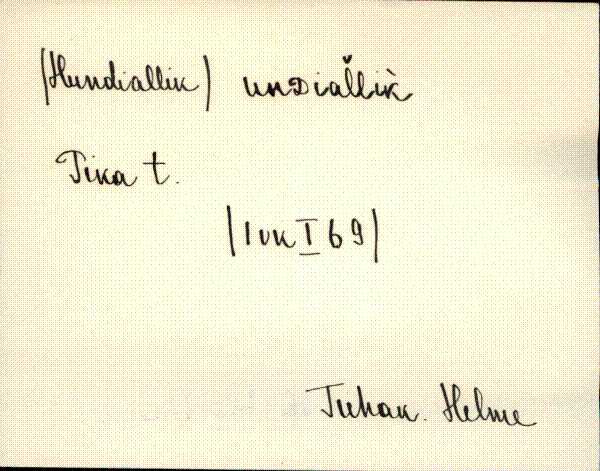 (Hundiallik) unDiaľľik̀
Pika t.
|Ivk I 69|
Tuhal. Helme